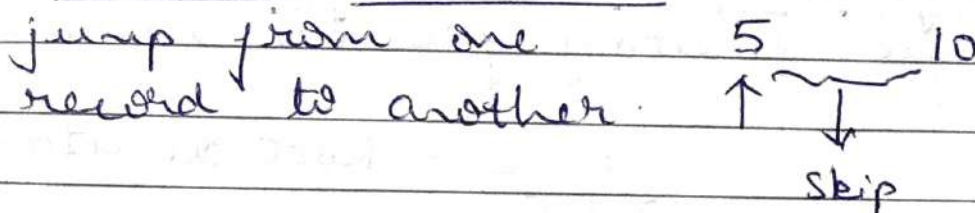 jump from one 5 10
record to another.
skip